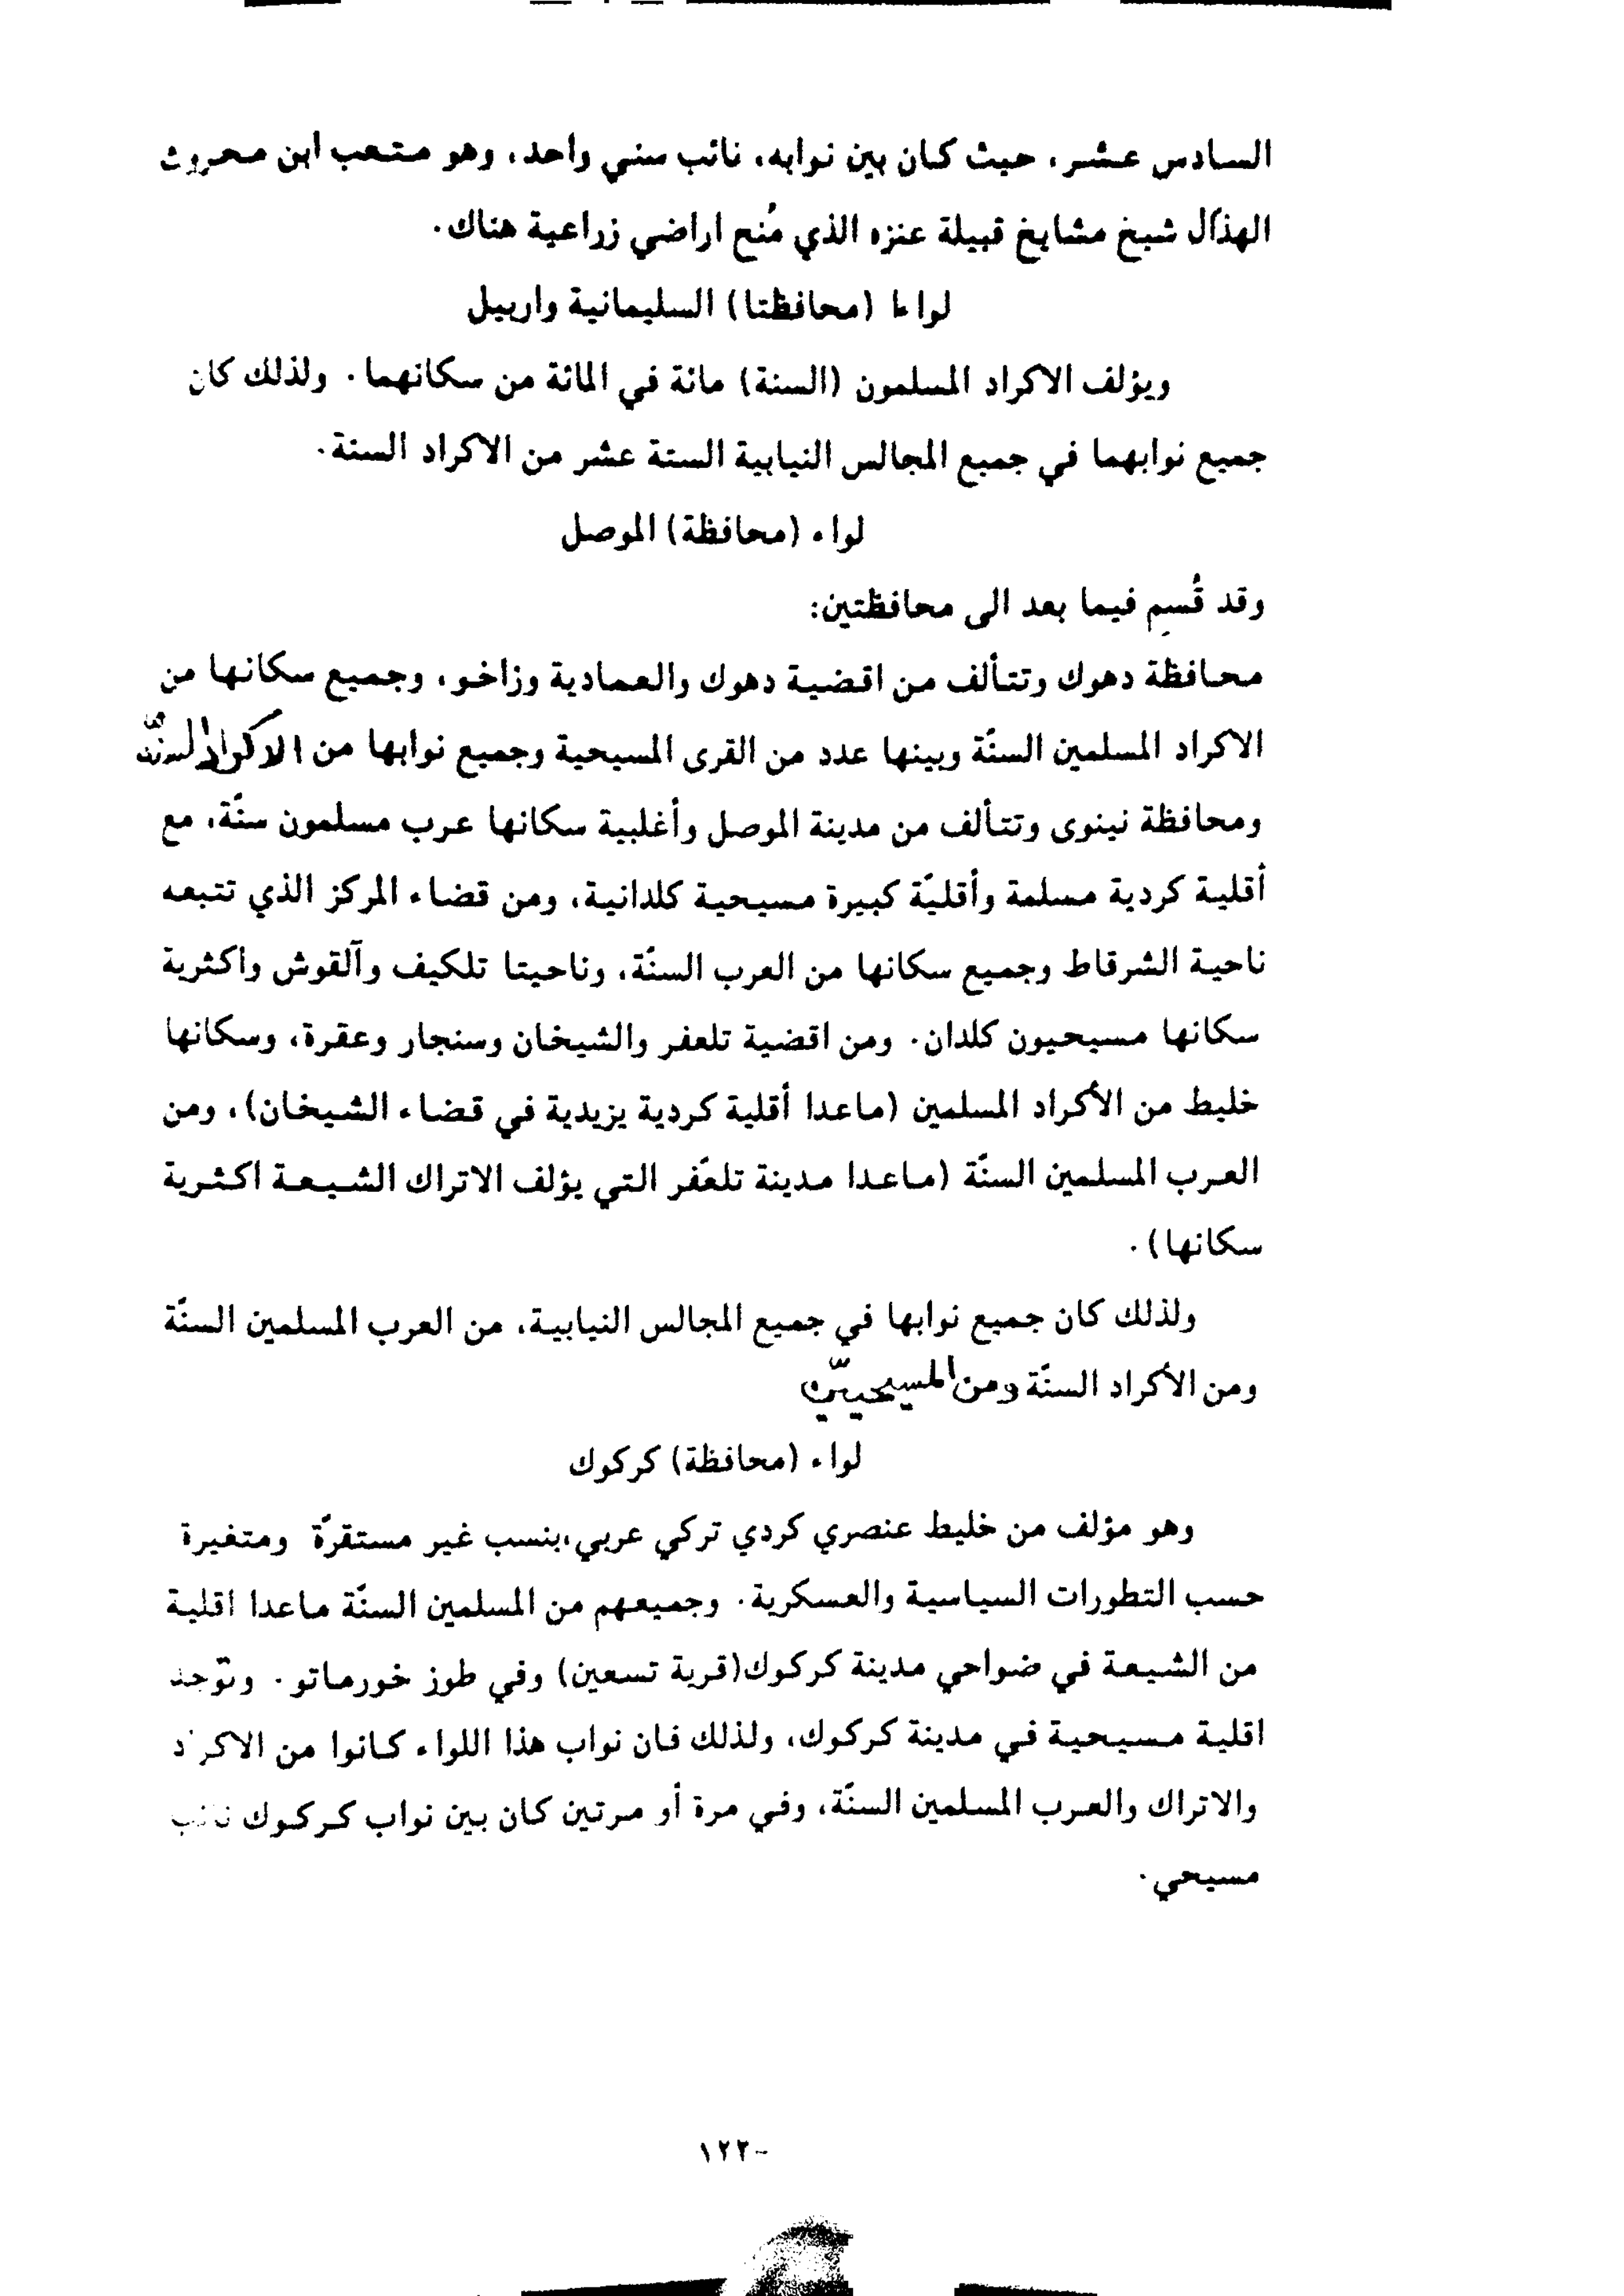 السادس عشر، حيث كان بين نوابه، نائب سني واحد، وهو متعب ابن محروث
الهذّال شيخ مشايخ قبيلة عنزه الذي مُنح اراضي زراعية هناك.
لواءا (محافظتا) السليمانية واربيل
ويؤلف الاكراد المسلمون (السنة) مائة في المائة من سكانهما. ولذلك كان
جميع نوابهما في جميع المجالس النيابية الستة عشر من الاكراد السنة.
لواء (محافظة) الموصل
وقد قُسِم فيما بعد الى محافظتين:
محافظة دهوك وتتألف من اقضية دهوك والعمادية وزاخو، وجميع سكانها من
الاكراد المسلمين السنّة وبينها عدد من القرى المسيحية وجميع نوابها من الاكراد السنّة
ومحافظة نينوى وتتألف من مدينة الموصل وأغلبية سكانها عرب مسلمون سنّة، مع
أقلية كردية مسلمة وأقليّة كبيرة مسيحية كلدانية، ومن قضاء المركز الذي تتبعه
ناحية الشرقاط وجميع سكانها من العرب السنّة، وناحيتا تلكيف وآلقوش واكثرية
سكانها مسيحيون كلدان. ومن اقضية تلعفر والشيخان وسنجار وعقرة، وسكانها
خليط من الأكراد المسلمين (ماعدا أقلية كردية يزيدية في قضاء الشيخان)، ومن
العرب المسلمين السنّة (ماعدا مدينة تلعّفر التي يؤلف الاتراك الشيعة اكثرية
سكانها).
ولذلك كان جميع نوابها في جميع المجالس النيابية، من العرب المسلمين السنّة
ومن الأكراد السنّة ومن المسيحيّين
لواء (محافظة) كركوك
وهو مؤلف من خليط عنصري كردي تركي عربي،بنسب غير مستقرّة ومتغيرة
حسب التطورات السياسية والعسكرية. وجميعهم من المسلمين السنّة ماعدا اقلية
من الشيعة في ضواحي مدينة كركوك(قرية تسعين) وفي طوز خورماتو. وتوجد
اقلية مسيحية في مدينة كركوك، ولذلك فان نواب هذا اللواء كانوا من الاكراد
والاتراك والعرب المسلمين السنّة، وفي مرة أو مرتين كان بين نواب كركوك نائب
مسيحي.
-١٢٢